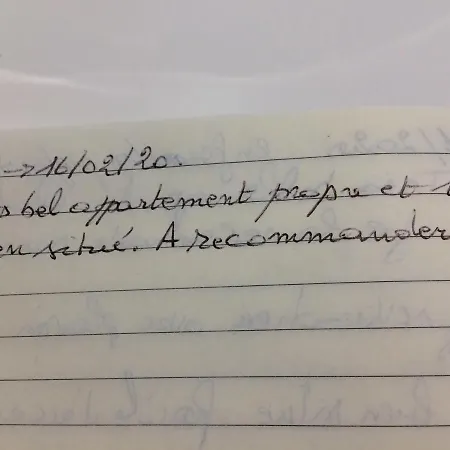 ->16/02/20.
s bel appartement propre et
en situé. A recommander